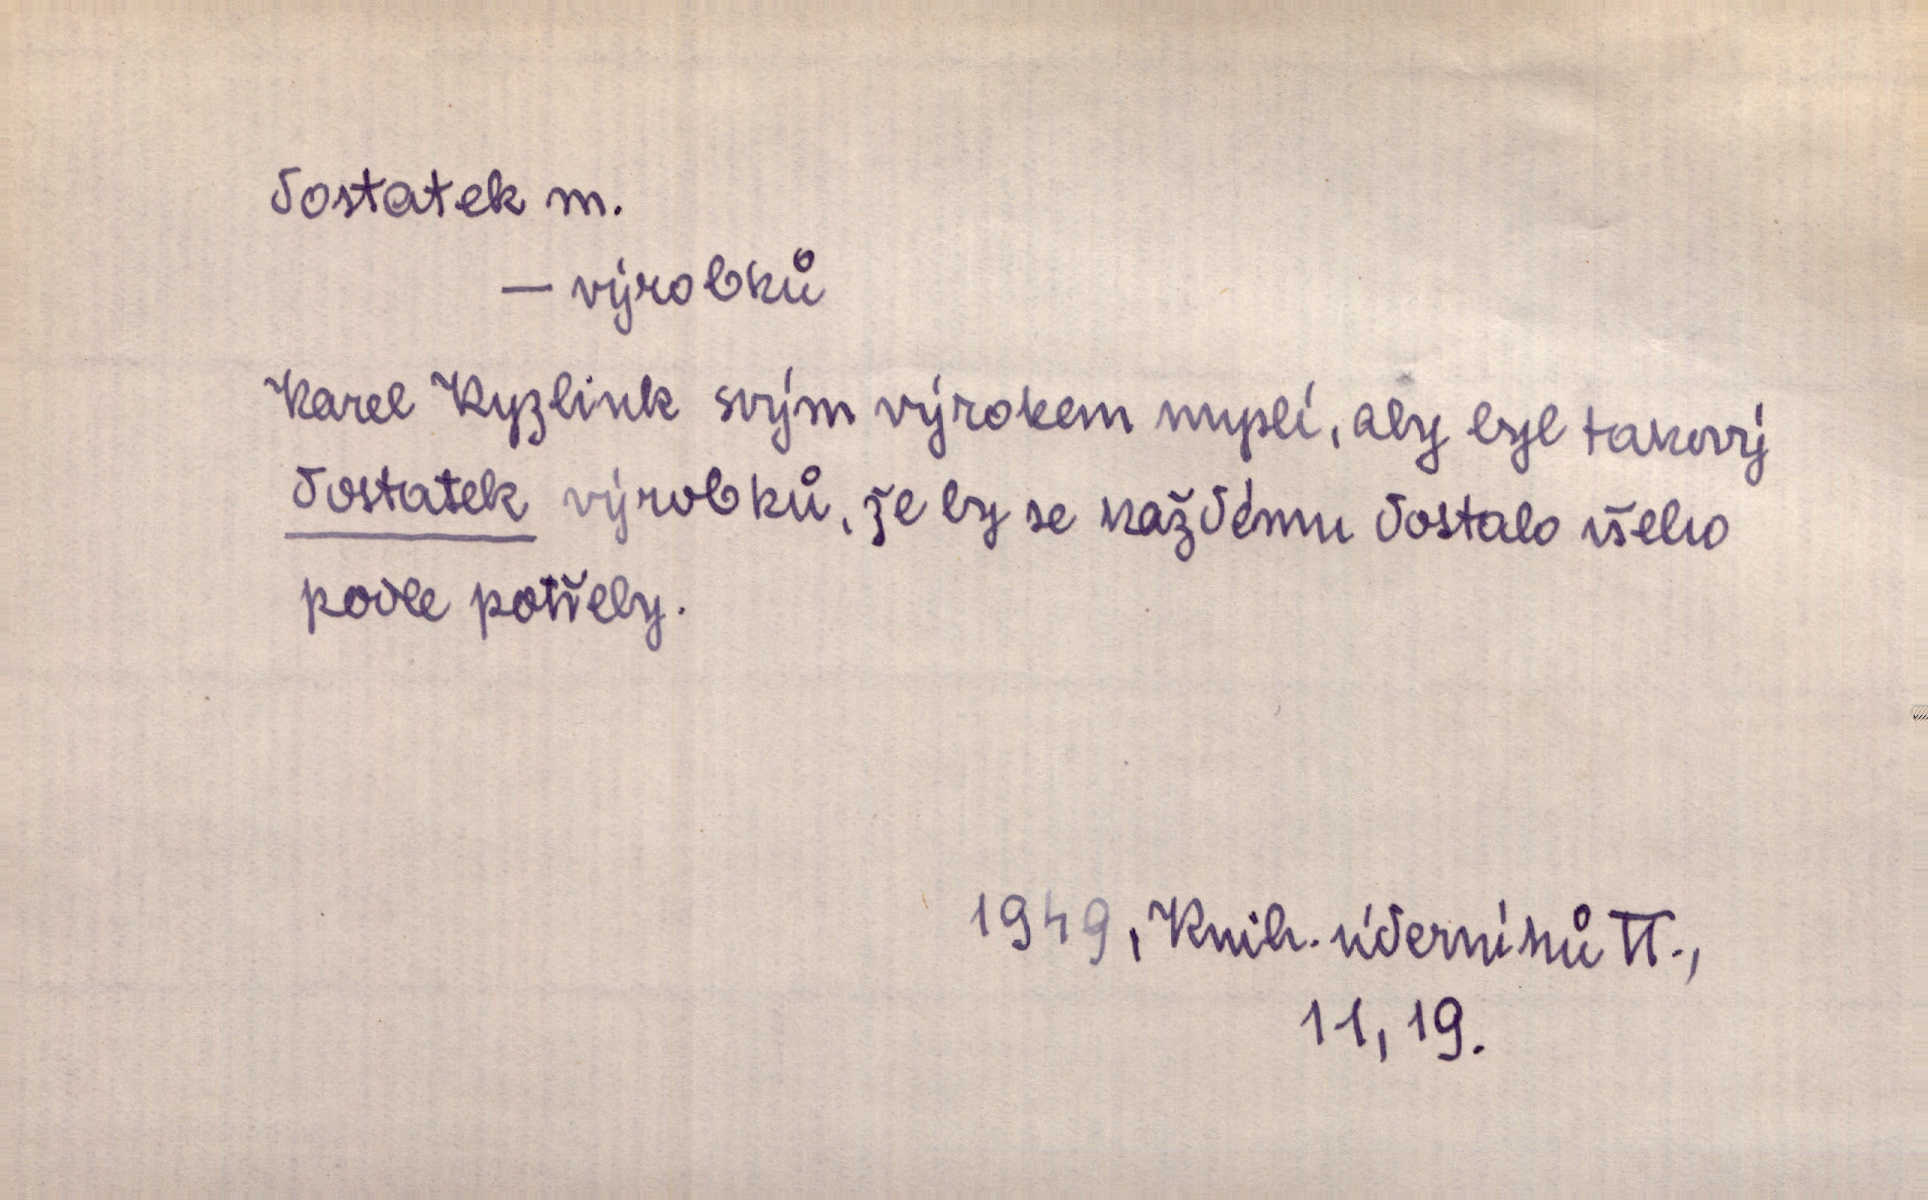 dostatek m.
— výrobků
Karel Kyzlink svým výrokem myslí, aby byl takový
dostatek výrobků, že by se každému dostalo všeho
podle potřeby.
1949, Knih. úderníků II.,
11, 19.